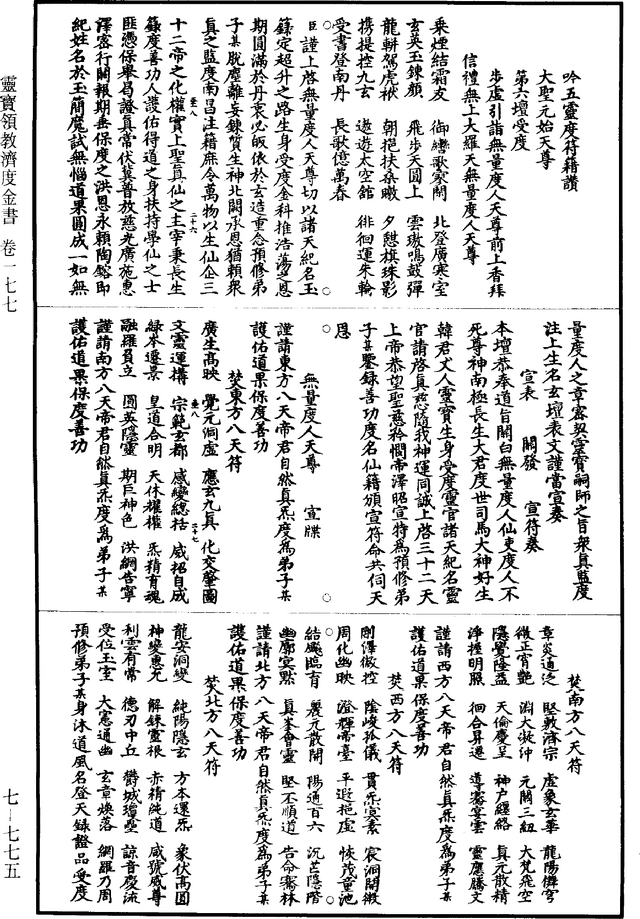 吟五靈度符籍讚
大聖元始天尊
第六壇受度
步虛引詣無量度人天尊前上香拜
信禮無上大羅天無量度人天尊
乘煙結霜友 御轡歌寥閒 北登廣寒室
玄英玉鍊顏 飛步天圓上 雲璈鳴鼓彈
龍軿駕虎袱 朝挹扶桑暾 夕憇旗珠影
携提控九玄 遨遊太空館 徘徊運朱輪
受書登南丹 長歌億萬春
臣謹上啓無量度人天尊切以諸天紀名玉
籙定超升之路生身受度金科推浩蕩之恩
期圓滿於丹衷必皈依於玄造重念預修弟
子某脫塵離妄鍊質生神北闕承恩猶賴衆
真之監度南昌注籍庶令萬物以生仙企三
十二帝之化權實上聖真仙之主宰秉長生
籙度善功人護佑得道之身扶持學仙之士
匪憑保舉曷證真常伏冀普放慈光廣施惠
澤密行關報期垂保度之洪恩永賴陶鎔即
紀姓名於玉簡魔試無惱道果圓成一如無
量度人之章密契靈寶嗣師之旨衆真監度
注上生名玄壇表文謹當宣奏
宣表 開發 宣符奏
本壇恭奉道旨關白無量度人仙吏度人不
死尊神南極長生大君度世司馬大神好生
韓君丈人靈寶生身受度靈官諸天紀名靈
官請啓真慈隨我神運同誠上啓三十二天
上帝恭望聖慈矜憫帝澤昭宣特為預修弟
子某鑒錄善功度名仙籍頒宣符命共伺天
恩
無量度人天尊 宣牒
謹請東方八天帝君自然真炁度為弟子某
護佑道果保度善功
焚東方八天符
廣生高映 覺元洞虛 應玄九真 化交肇圖
文靈運構 宗範玄都 感變總括 威招自成
綠本遷景 皇道合明 天休權權 炁精育魂
融羅員立 圓英隱靈 期臣神色 洪網告寧
謹請南方八天帝君自然真炁度為弟子某
護佑道果保度善功
焚南方八天符
章炎道泛 堅敷濟宗 虛象玄華 龍陽儛穹
微正宵艷 淵大凝沖 元關三紐 大梵飛空
隱覺隆益 天倫慶呈 神戶纏絡 真元散精
淨推明照 徊合昇遷 導寄宴雲 靈應騰文
謹請西方八天帝君自然真炁度為弟子某
護佑道果保度善功
焚西方八天符
剛澤微控 隆峻孤儀 貫炁冥素 宸洞開緻
周化幽映 澄輝帝臺 平遐抱虛 恢茂童池
結颷臨育 製元散開 陽通百六 沉芒隱階
幽廓寔黙 真峯會靈 堅丕順道 告命騫林
謹請北方八天帝君自然真炁度為弟子某
護佑道果保度善功
焚北方八天符
龍安洞變 純陽隱玄 方本運炁 象伏高圓
神變惠无 解錬靈根 赤精純道 咸號威尊
利雲有常 德刃中丘 欝城壇壘 諒音慶流
受位玉室 大憲通幽 玄章煥落 綱羅乃周
預修弟子某身沐道風名登天籙證品受度
靈寶領教濟度金書 卷一七七
七—七七五